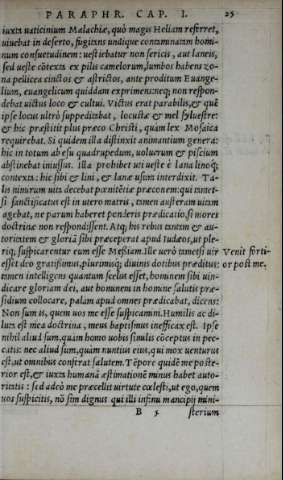 PARAPHR. CAP. I. 25
iuxta uaticinium Malachiæ, quò magis Heliam referret,
uiuebat in deserto, fugitans undique contaminatam homi-
num consuetudinem: uestiebatur non sericis, aut laneis,
sed ueste cōtexta ex pilis camelorum, lumbos habens zo-
na pellicea cinctos & astrictos, ante proditum Euange-
lium, euangelicum quiddam exprimens: neq; non respon-
debat uictus loco & cultui. Victus erat parabilis, & quē
ipse locus ultrò suppeditabat, locustæ & mel syluestre:
& hic præstitit plus præco Christi, quàm lex Mosaica
requirebat. Si quidem illa distinxit animantium genera:
hic in totum ab esu quadrupedum, uolucrum & piscium
abstinebat inussus. Illa prohibet uti ueste è lana linoq́;
contexta: hic sibi & lini, & lanæ usum interdixit. Ta-
lis nimirum uita decebat pœnitētiæ præconem: qui tamet-
si sanctificatus est in utero matris, tamen austeram uitam
agebat, ne parum haberet ponderis prædicatio, si mores
doctrinæ non respondissent. Atq; his rebus tantum & au-
toritatem & gloriā sibi præceperat apud Iudæos, ut ple-
riq; suspicarentur eum esse Messiam. Ille uerò tametsi uir Venit forti-
esset deo gratissimus, plurimisq; diuinis dotibus præditus: or post me.
tamen intelligens quantum scelus esset, hominem sibi uin-
dicare gloriam dei, aut hominem in homine salutis præ-
sidium collocare, palam apud omnes prædicabat, dicens:
Non sum is, quem uos me esse suspicamini. Humilis ac di-
luta est mea doctrina, meus baptismus inefficax est. Ipse
nihil aliud sum, quàm homo uobis similis cōceptus in pec-
catis: nec aliud sum, quàm nuntius eius, qui mox uenturus
est, ut omnibus conferat salutem. Tēpore quidē me poste-
rior est, & iuxta humanā æstimationē minus habet auto-
ritatis: sed adeò me præcellit uirtute cœlesti, ut ego, quem
uos suspicitis, nō sim dignus qui illi infimi mancipij mini-
B 5 sterium